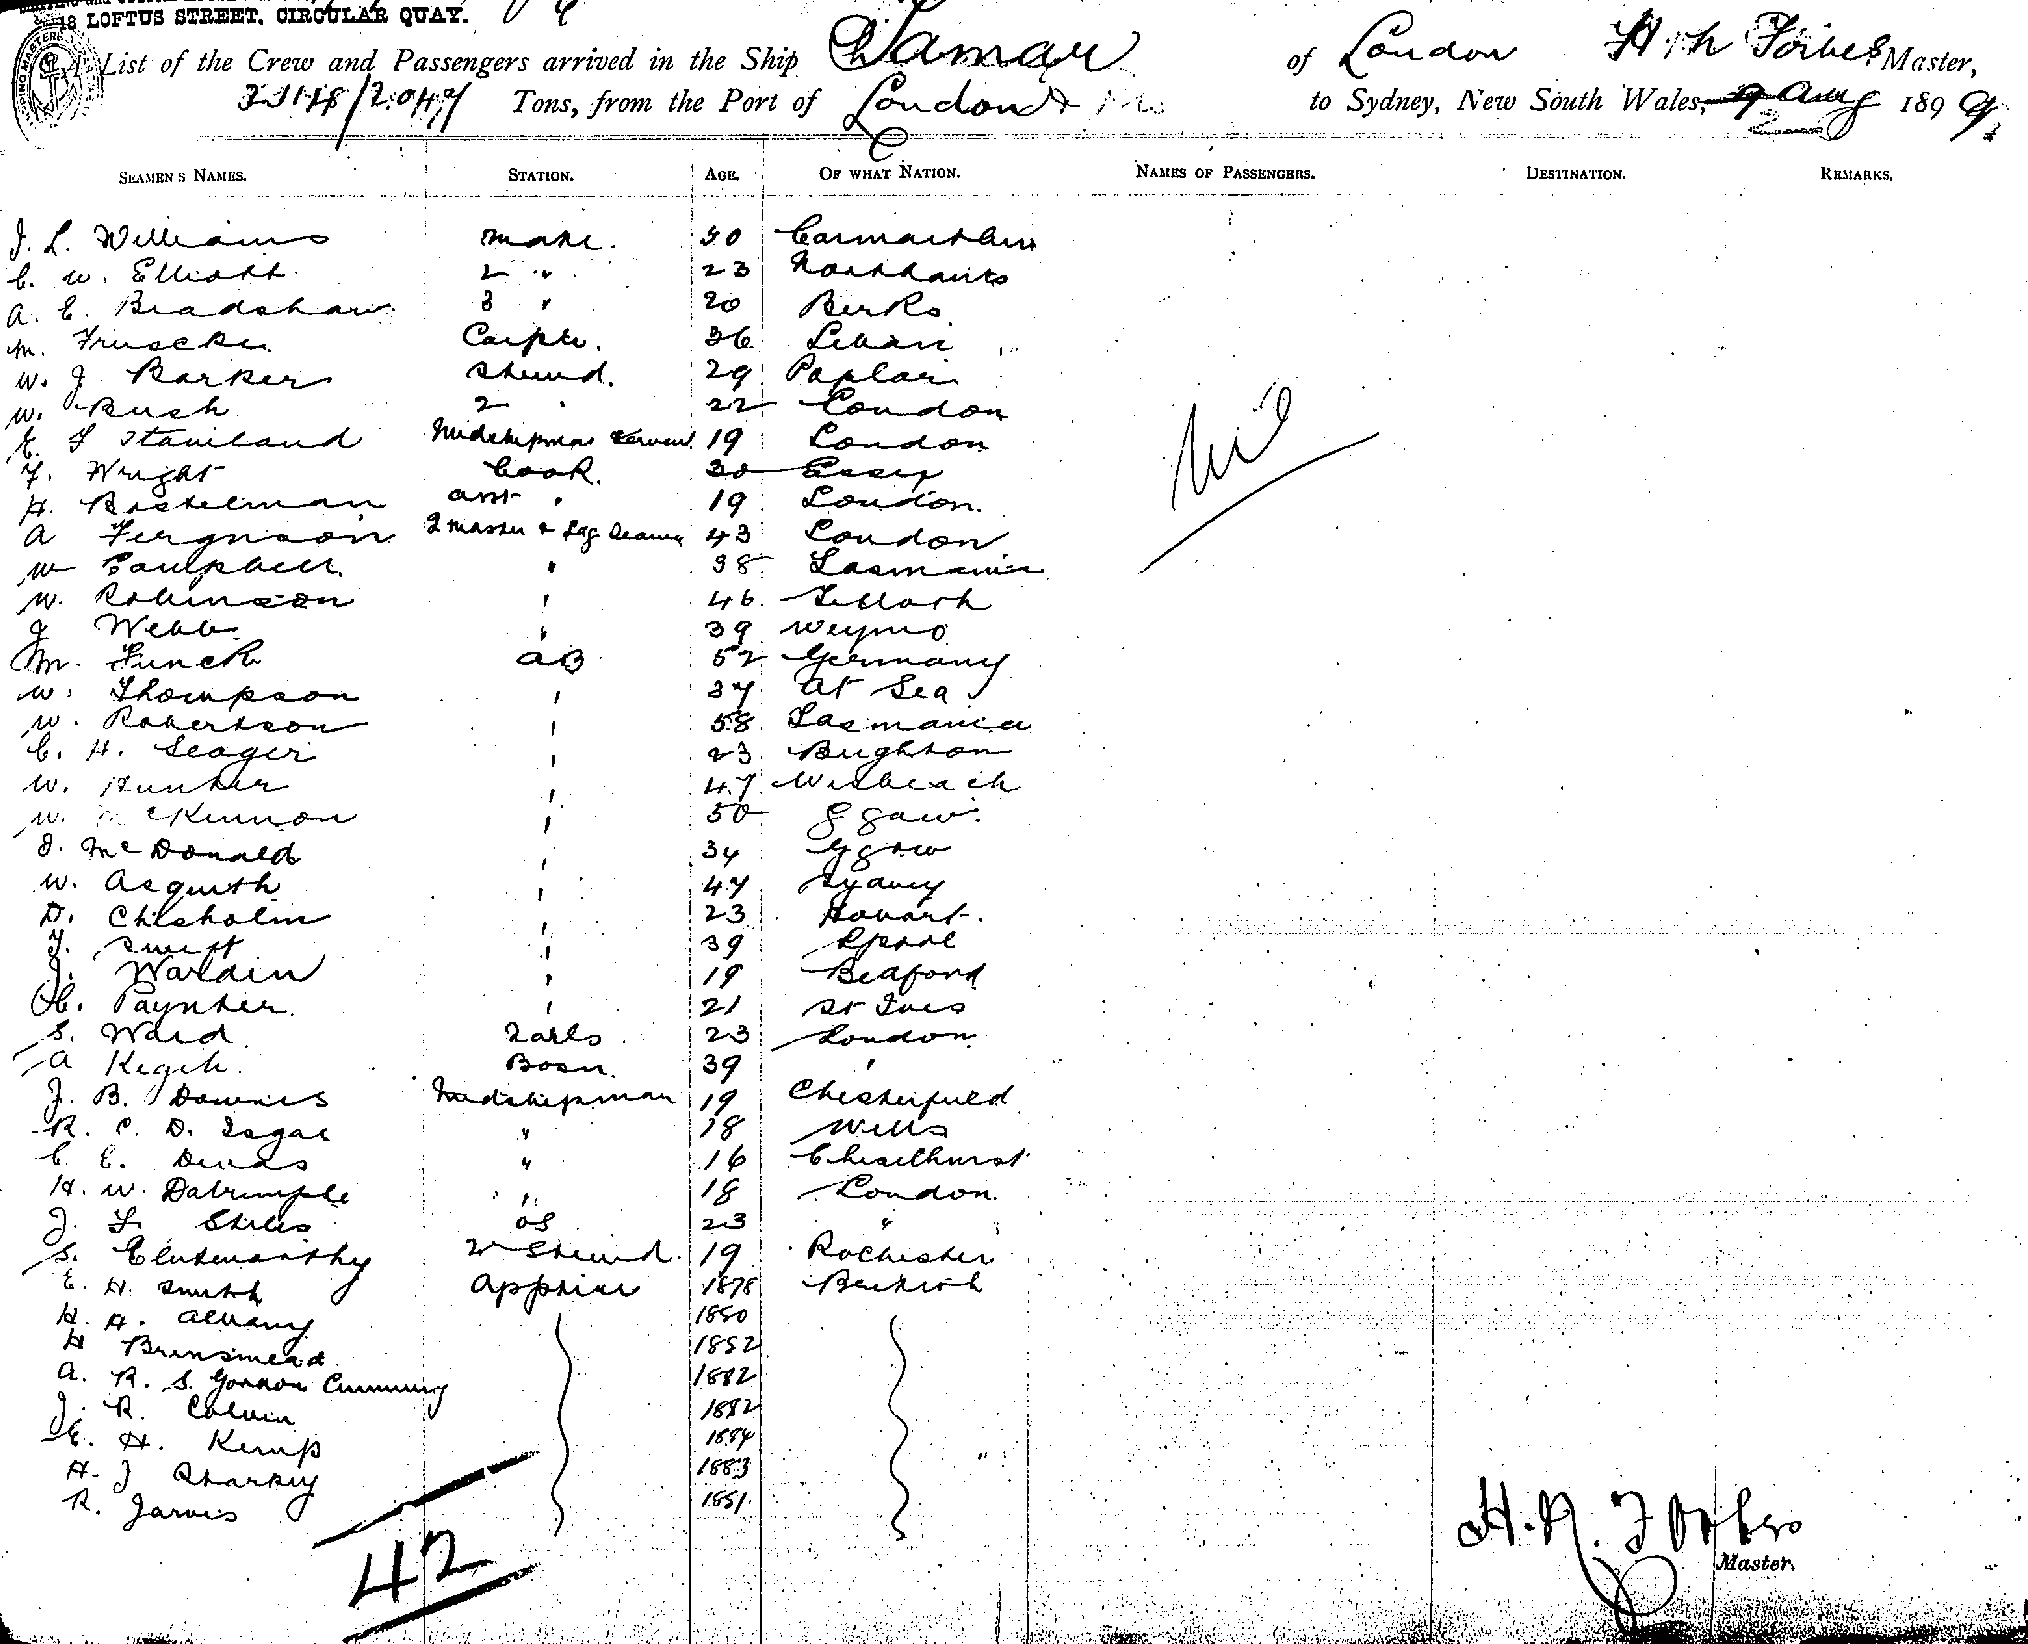 18 LOFTUS STREET, CIRCULAR QUAY.
List of the Crew and Passengers arrived in the Ship Tamar of London Forbes Master,
Tons, from the Port of London to Sydney, New South Wales, 2 Aug 1899
SEAMEN'S NAMES. STATION. AGE. OF WHAT NATION. NAMES OF PASSENGERS. DESTINATION. REMARKS.
J. L. Williams mate. 30
C. W. Elliott 2 " 23 Northants
A. E. Bradshaw 3 " 20 Berks
M. 36
W. J. Barker Steward. 29 Poplar
W. Bush 2 " 22 London
E. F Staniland Midshipmans Servant 19 London
F. Wright Cook. 30 Essex
H. Bostelman asst " 19 London.
A Ferguson 43 London
W Campbell " 38 Tasmania
W. Robinson " 46
J Webb " 39
M. Funck AB 52 Germany
W. Thompson " 37 at Sea
W. Robertson " 58 Tasmania
C. H. Seager " 23 Brighton
W. Hunter " 47 Wisbeach
W. McKinnon " 50 Ggow
J. McDonald " 34 Ggow
W. Asquith " 47 Sydney
D. Chisholm " 23 Hobart.
J. Swift " 39 Lpool
J. Wardin " 19 Bedford
C. Paynter. " 21 St Ives
S. Ward 23 London
A Bosn. 39 "
J. B. Downes Midshipman 19 Chesterfield
R. C. D. Isgar " 18 Wilts
C. E. " 16 Chiselhurst
H. W. Dalrymple " 18 London
J. F. Stiles OS 23 "
S. Clutterworthy 2nd Steward. 19 Rochester
E. H. Smith Apprtice 1878 British
H. H. Albany 1880
H Brinsmead 1882
A. R. S. Gordon Cumming 1882
J. R. Colvin 1882
E. H. Kemp 1884
H. J Sharkey 1883
R. Jarvis 1881
Nil
42
H. N. Forbes
Master.